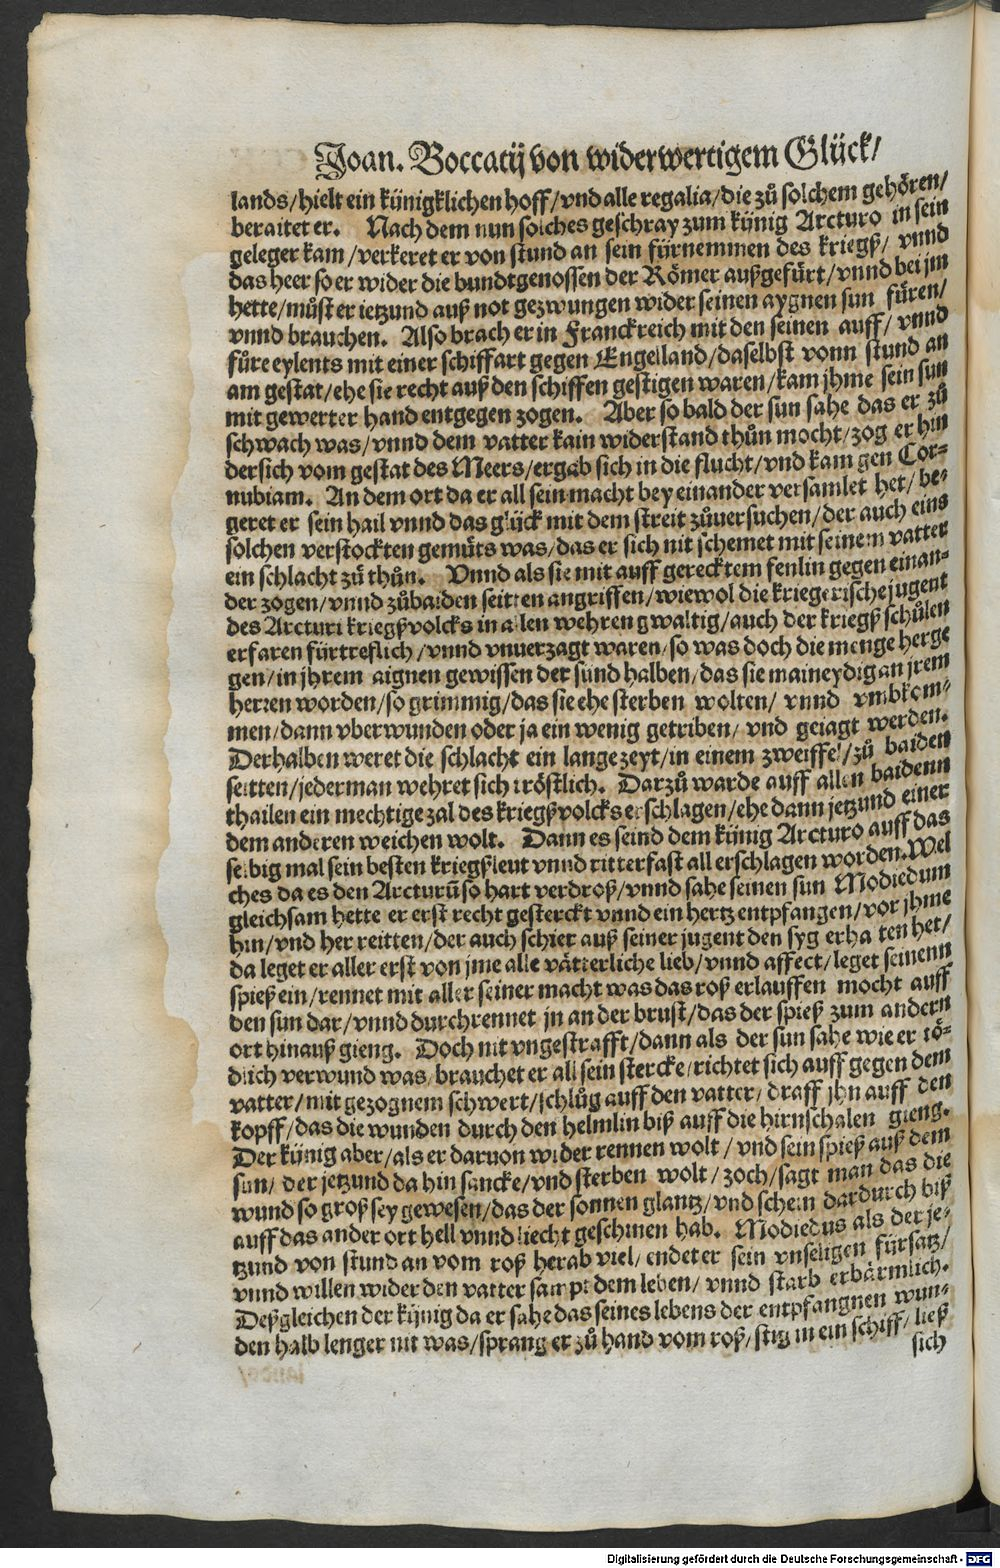 Joan. Boccatij von widerwertigem Glück/
lands/hielt ein künigklichen hoff/vnd alle regalia/die zů solchem gehören/
beraitet er. Nach dem nun solches geschray zum künig Arcturo in sein
geleger kam/verkeret er von stund an sein fürnemmen des kriegß/ vnnd
das heer so er wider die bundtgenossen der Römer außgefürt/vnnd bei jm
hette/můst er ietzund auß not gezwungen wider seinen aygnen sun füren/
vnnd brauchen. Also brach er in Franckreich mit den seinen auff/ vnnd
fůre eylents mit einer schiffart gegen Engelland/daselbst vonn stund an
am gestat/ehe sie recht auß den schiffen gestigen waren/kam jhme sein sun
mit gewerter hand entgegen zogen. Aber so bald der sun sahe das er zů
schwach was/vnnd dem vatter kain widerstand thůn mocht/zog er hin
dersich vom gestat des Meers/ergab sich in die flucht/vnd kam gen Cor-
nubiam. An dem ort da er all sein macht bey einander versamlet het/be-
geret er sein hail vnnd das glück mit dem streit zůuersuchen/der auch eins
solchen verstockten gemüts was/das er sich nit schemet mit seinem vatter
ein schlacht zů thůn. Vnnd als sie mit auff gerecktem fenlin gegen einan-
der zogen/vnnd zůbaiden seitten angriffen/wiewol die kriegerische jugent
des Arcturi kriegßvolcks in allen wehren gwaltig/auch der kriegß schůlen
erfaren fürtreflich/vnnd vnuerzagt waren/so was doch die menge herge
gen/in jhrem aignen gewissen der sünd halben/das sie maineydig an jrem
herren worden/so grimmig/das sie ehe sterben wolten/ vnnd vmbkom-
men/dann vberwunden oder ja ein wenig getriben/ vnd geiagt werden.
Derhalben weret die schlacht ein lange zeyt/in einem zweiffel/zů baiden
seitten/jederman wehret sich tröstlich. Darzů warde auff allen baidenn
thailen ein mechtige zal des kriegßvolcks erschlagen/ehe dann jetzund einer
dem anderen weichen wolt. Dann es seind dem künig Arcturo auff das
selbig mal sein besten kriegßleut vnnd ritter fast all erschlagen worden. Wel
ches da es den Arcturū so hart verdroß/vnnd sahe seinen sun Modiedum
gleichsam hette er erst recht gesterckt vnnd ein hertz entpfangen/vor jhme
hin/vnd her reitten/der auch schier auß seiner jugent den syg erhalten het/
da leget er aller erst von jme alle vätterliche lieb/vnnd affect/leget seinenn
spieß ein/rennet mit aller seiner macht was das roß erlauffen mocht auff
den sun dar/vnnd durchrennet jn an der brust/das der spieß zum andern
ort hinauß gieng. Doch nit vngestrafft/dann als der sun sahe wie er tö-
dlich verwund was/brauchet er all sein stercke/richtet sich auff gegen dem
vatter/mit gezognem schwert/schlůg auff den vatter/ draff jhn auff den
kopff/das die wunden durch den helmlin biß auff die hirnschalen gieng.
Der künig aber/als er daruon wider rennen wolt/ vnd sein spieß auß dem
sun/ der jetzund da hin sancke/vnd sterben wolt/ zoch/sagt man das die
wund so groß sey gewesen/das der sonnen glantz/vnd schein dardurch biß
auff das ander ort hell vnnd liecht geschinen hab. Modiedus als der je-
tzund von stund an vom roß herab viel/ endet er sein vnseligen fürsatz/
vnnd willen wider den vatter sampt dem leben/ vnnd starb erbärmlich.
Deßgleichen der künig da er sahe das seines lebens der entpfangnen wun-
den halb lenger nit was/sprang er zů hand vom roß/stig in ein schiff/ließ
sich
Digitalisierung gefördert durch die Deutsche Forschungsgemeinschaft - DFG